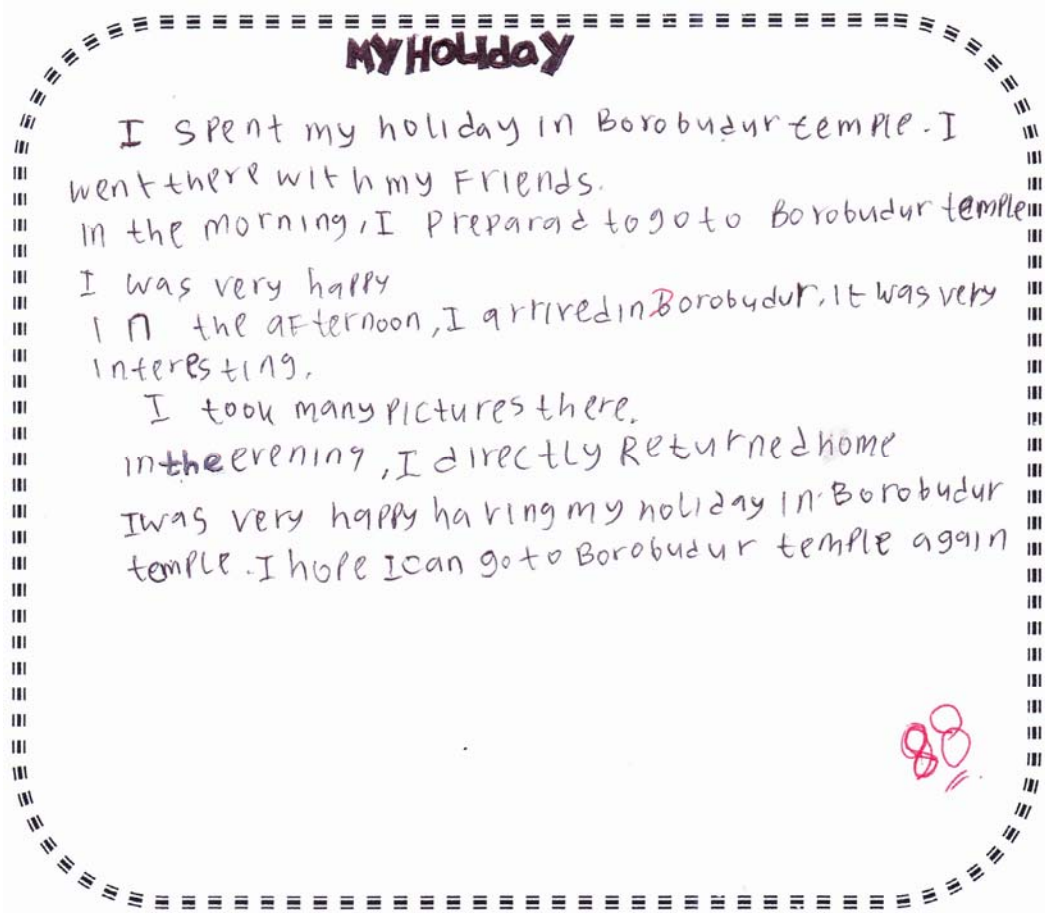 MY HOLIdaY
I spent my holiday in Borobudur temple. I
went there with my Friends.
In the morning, I Preparad to go to Borobudur temple
I was very happy
In the aFternoon, I arrived in Borobudur. It was very
Interesting.
I took many pictures there.
in the evening, I directly Returned home
I was very happy having my holiday in Borobudur
temple. I hope I can go to Borobudur temple again
88